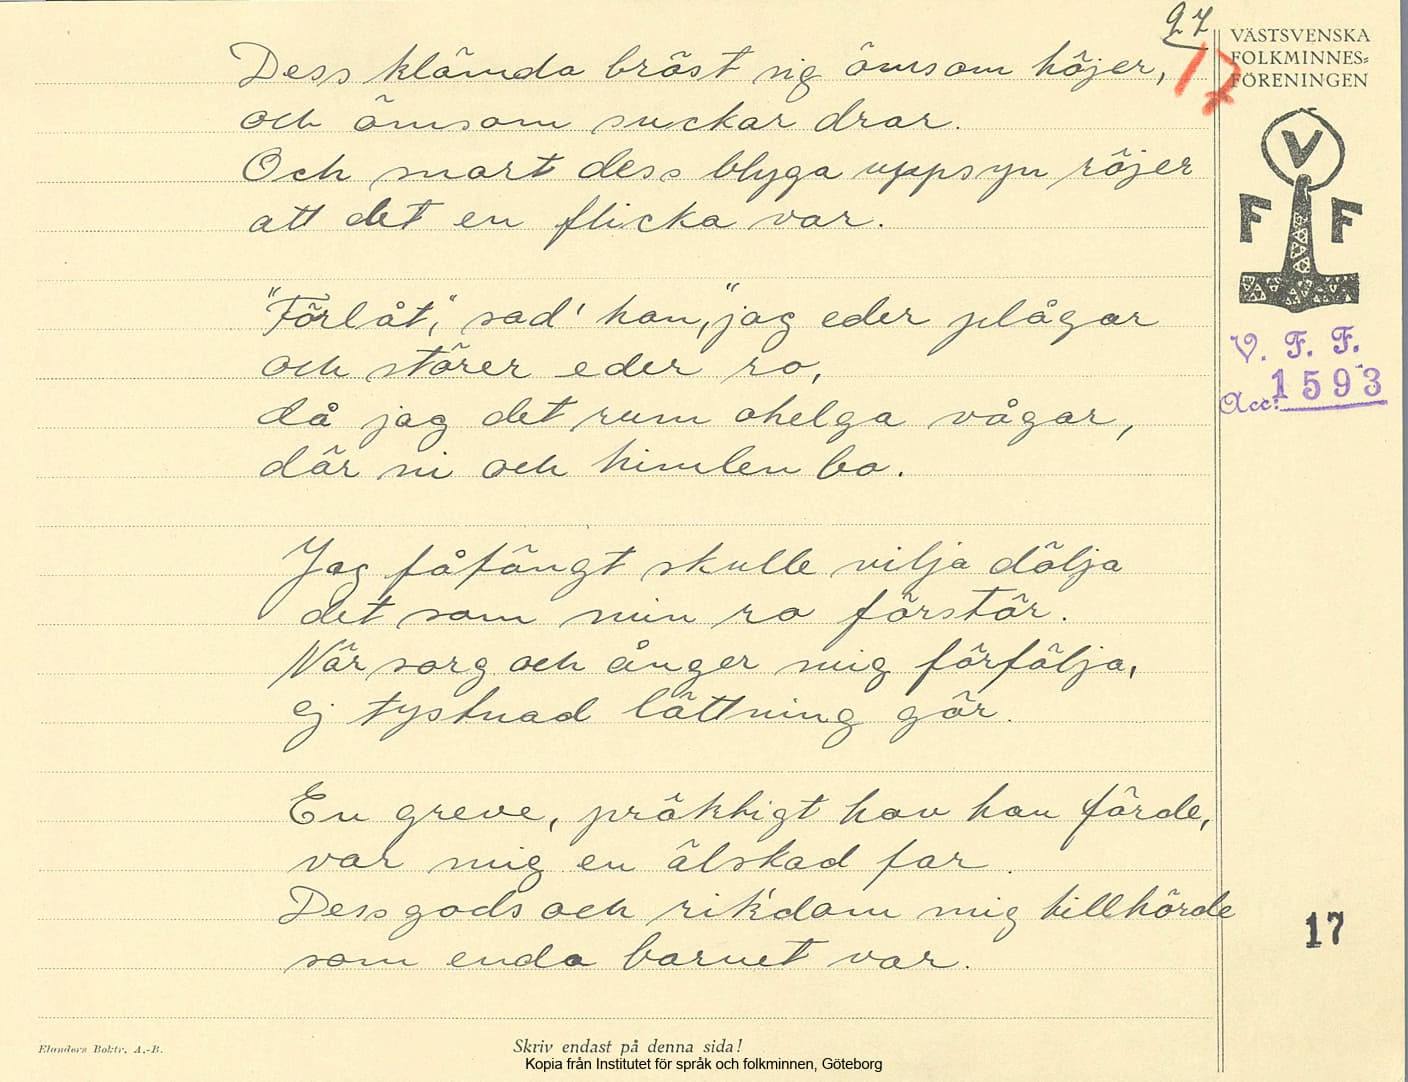 27
17
VÄSTSVENSKA
FOLKMINNES-
FÖRENINGEN
V
F F
V. F. F.
Acc: 1593
Dess klämda bröst sig ömsom höjer,
och ömsom suckar drar.
Och snart dess blyga uppsyn röjer
att det en flicka var.
"Förlåt", sad' han, "jag eder plågar
och störer eder ro,
då jag det rum ohelga vågar,
där ni och himlen bo.
Jag fåfängt skulle vilja dölja
det som min ro förstör.
När sorg och ånger mig förfölja,
ej tystnad lättning gör.
En greve, präktigt hov han förde,
var mig en älskad far.
Dess gods och rikdom mig tillhörde
som enda barnet var.
17
Elanders Boktr. A.-B.
Skriv endast på denna sida!
Kopia från Institutet för språk och folkminnen, Göteborg